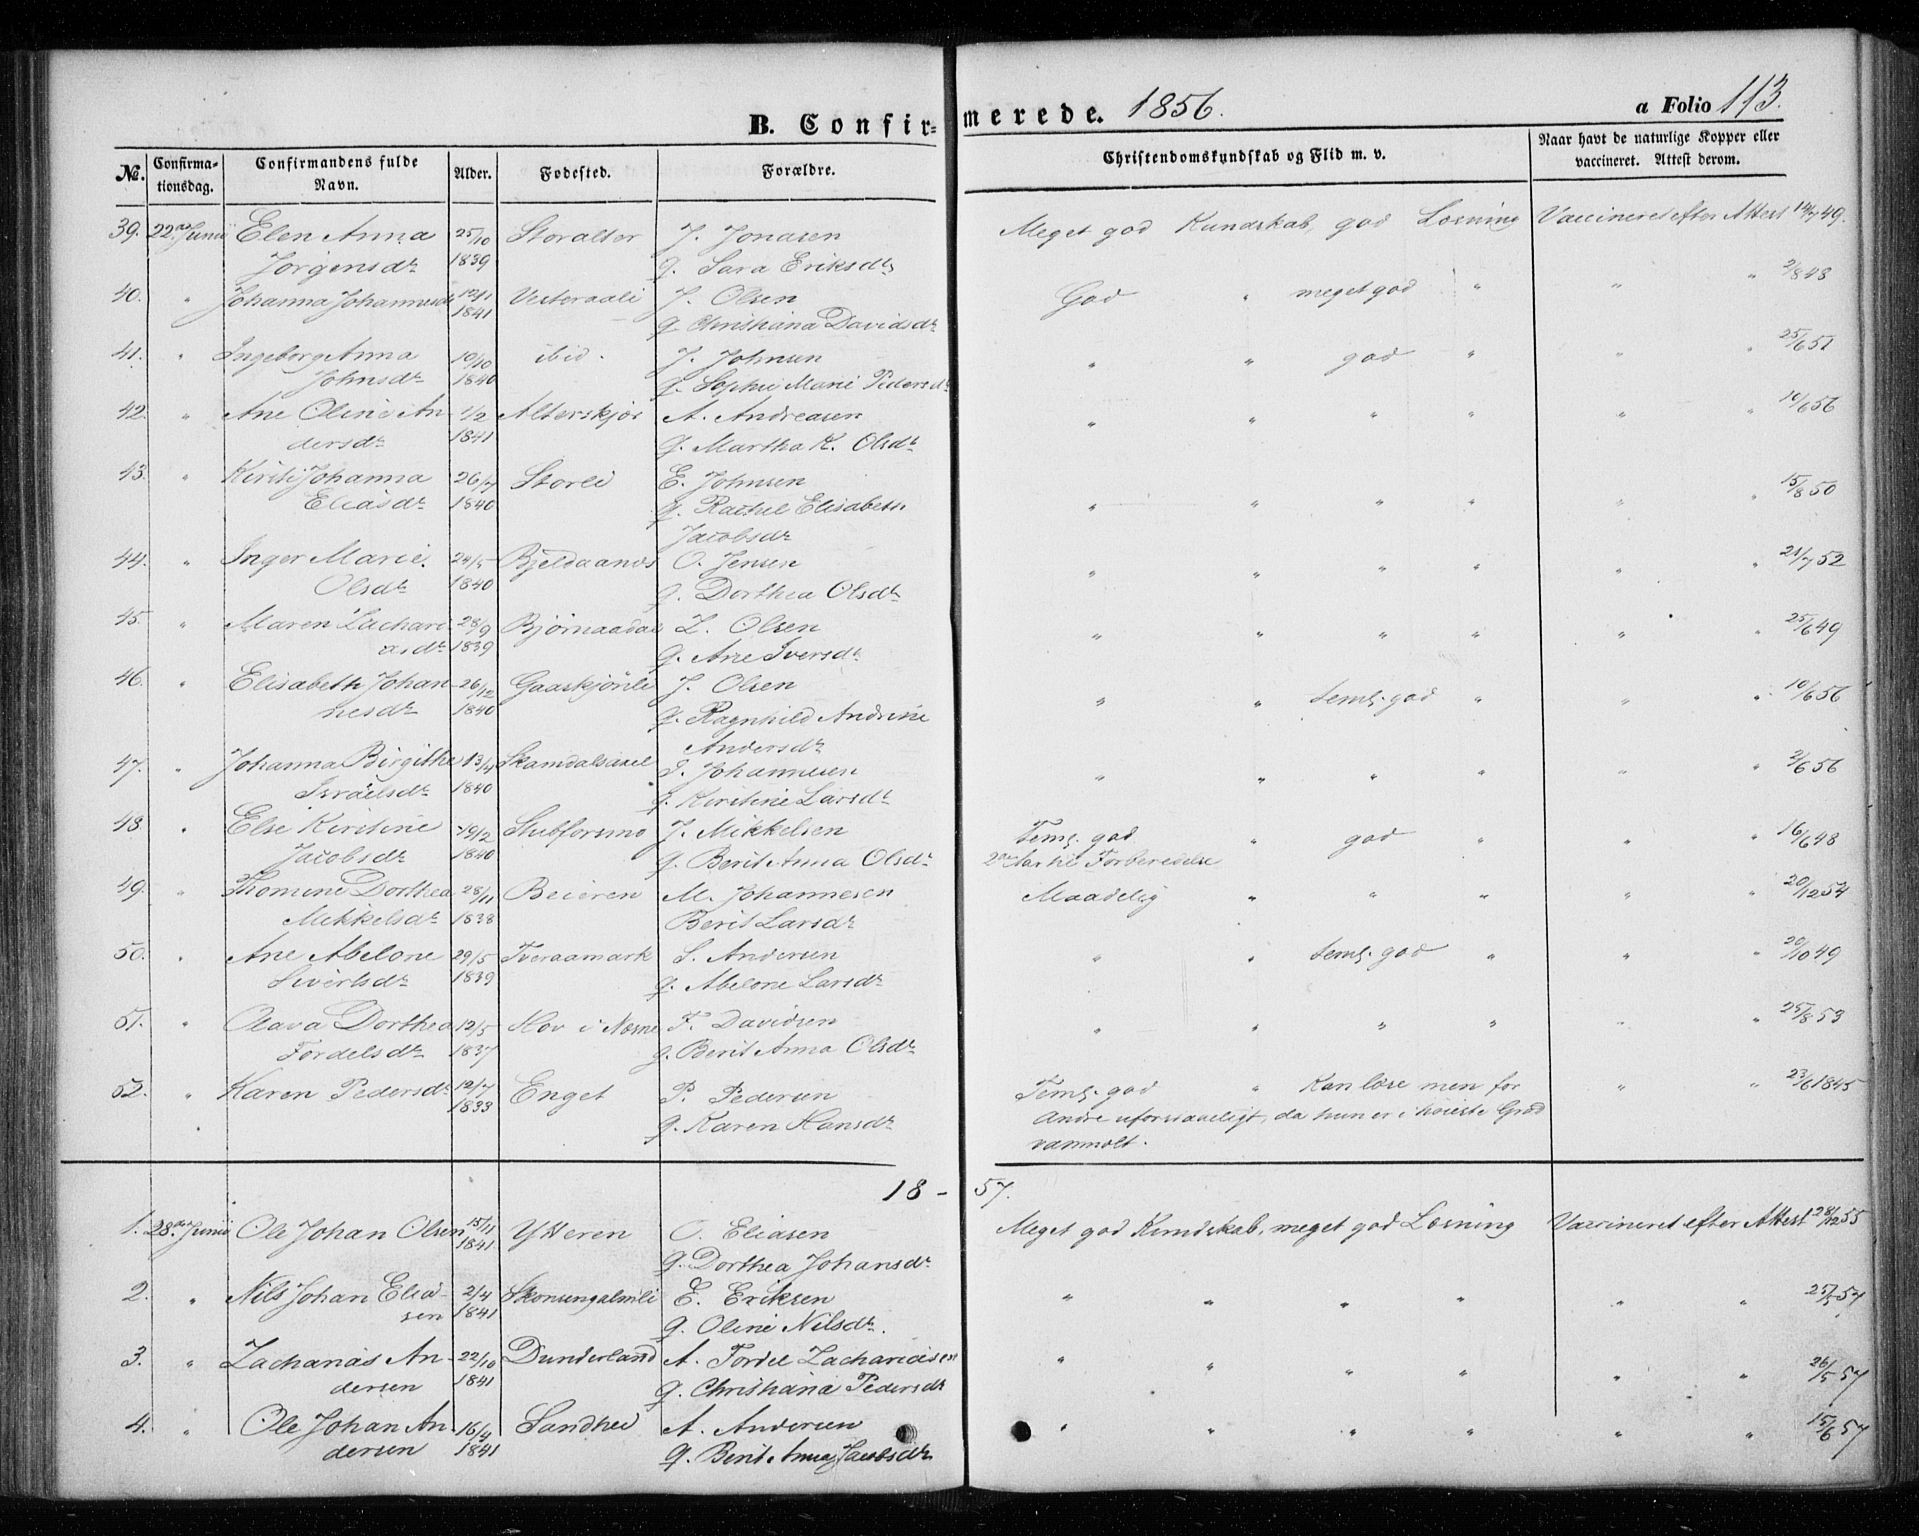 B. Confirmerede. 1856. a Folio 113.
No. Confirmationsdag. Confirmandens fulde Navn. Alder. Fødested. Forældre. Christendomskundskab og Flid m. v. Naar havt de naturlige Kopper eller vaccineret. Attest derom.
39. 22de Junii Elen Anna 25/10 Storalter J. Jonasen Meget god Kundskab, god Læsning Vaccineret efter Attest 14/7 49.
Jørgensdr 1839 g. Sara Eriksdr
40. " Johanna Johannesdr 12/11 Vesteraali J. Olsen God " meget god " " " 2/8 48
1841 g. Christiana Davidsdr
41. " Ingeborg Anna 10/10 ibid. J. Johnsen " " god " " " 25/6 51
Johnsdr 1840 g. Sophie Marie Pedersdr
42. " Ane Oline An- 1/2 Alterskjær A. Andreasen " " " " " " 10/6 56
dersdr 1841 g. Martha K. Olsdr
43. " Kirsti Johanna 26/7 Storli E. Johnsen " " " " " " 15/8 50
Eliasdr 1840 g. Rachel Elisabeth
Jacobsdr
44. " Inger Marie 24/5 Bjeldaanes O. Jensen " " " " " " 21/7 52
Olsdr 1840 g. Dorthea Olsdr
45. " Maren Zachari- 28/9 Bjørnaadal Z. Olsen " " " " " " 25/6 49
asdr 1839 g. Ane Iversdr
46. " Elisabeth Johan- 26/12 Gaaskjønli J. Olsen " " teml. god " " " 10/6 56
nesdr 1840 g. Ragnhild Andrine
Andersdr
47. " Johanna Birgithe 13/4 Skamdalsaxel I. Johannesen " " " " " " 2/6 56
Israelsdr 1840 g. Kirstine Larsdr
48. " Else Kirstine 19/2 Stubforsmo J. Mikkelsen Teml. god " god " " " 16/6 48
Jacobsdr 1840 g. Berit Anna Olsdr 2det Aar til Forberedelse
49. " Thomine Dorthea 28/11 Beieren M. Johannesen Maadelig " " " " " 20/12 54
Mikkelsdr 1838 Berit Larsdr
50. " Ane Abelone 29/5 Tveraamark S. Andersen " " teml. god " " " 20/10 49
Sivertsdr 1839 g. Abelone Larsdr
51. " Olava Dorthea 12/5 Hov i Næsne F. Davidsen " " " " " " 25/8 53
Fordelsdr 1837 g. Berit Anna Olsdr
52. " Karen Pedersdr 12/7 Enget P. Pedersen Teml. god " Kan læse men for " " 23/6 1845
1833 g. Karen Hansdr Andre uforstaaeligt, da hun er i høieste Grad
vanmælt.
18-57.
1. 28de Junii Ole Johan Olsen 15/11 Ytteren O. Eliasen Meget god Kundskab, meget god Læsning Vaccineret efter Attest 28/12 55
1841 g. Dorthea Johansdr
2. " Nils Johan Elia- 2/4 Skonsengalmli E. Eriksen " " " " " " 25/5 57
sen 1841 g. Oline Nilsdr.
3. " Zacharias An- 22/10 Dunderland A. Fordel Zachariasen " " " " " " 26/5 57
dersen 1841 g. Christiana Pedersdr
4. " Ole Johan An- 16/4 Sandhei A. Andersen " " " " " " 15/6 57
dersen 1841 g. Berit Anna Jacobsdr